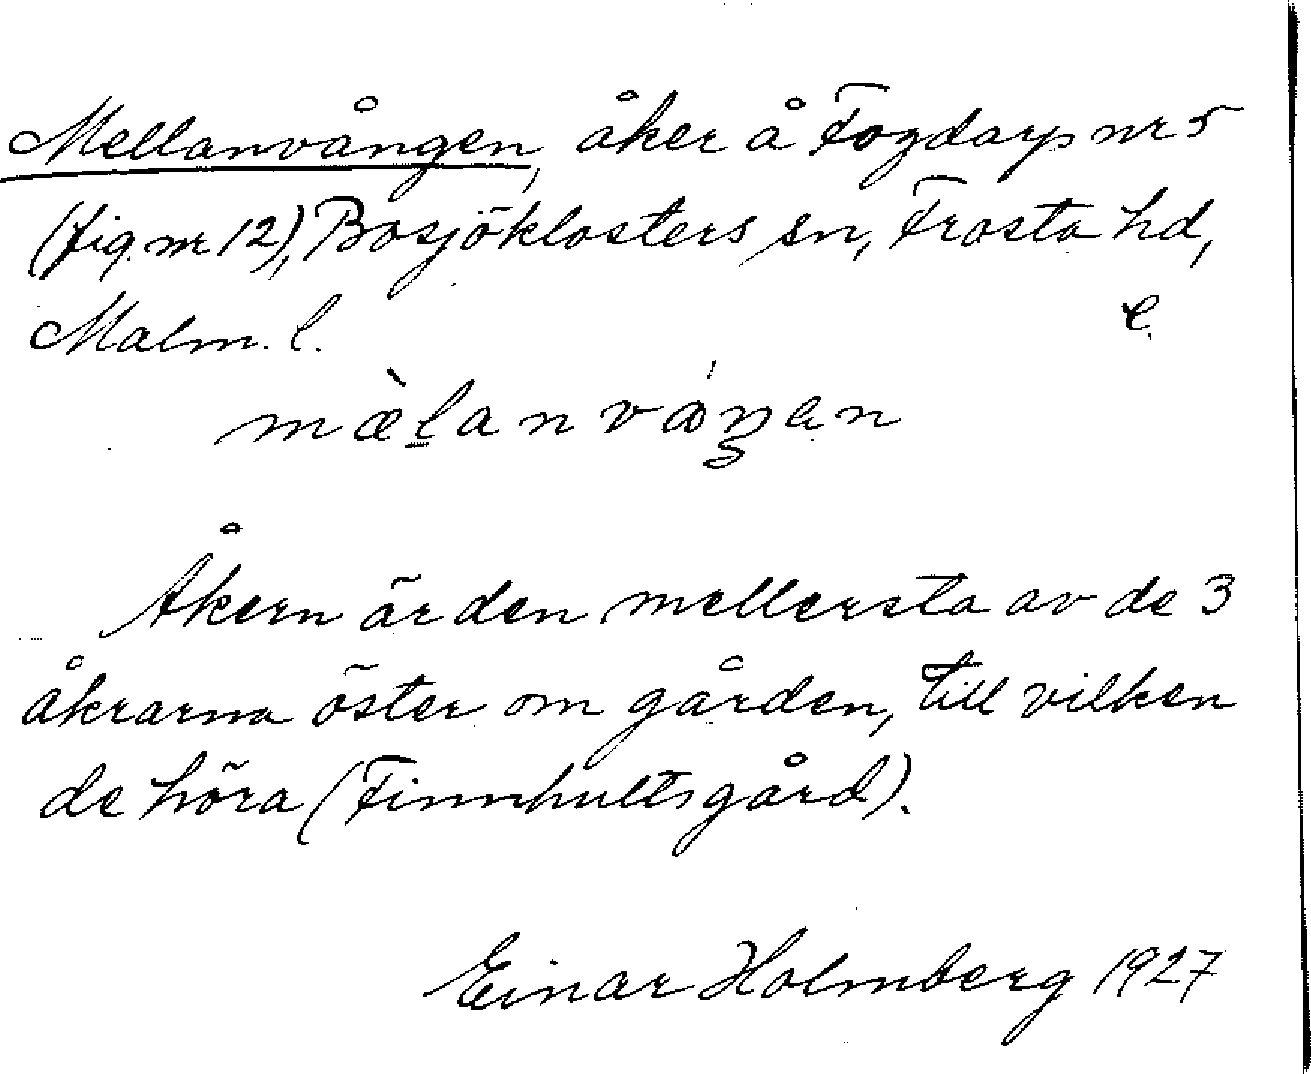 Mellanvången, åker å Fogdarp nr 5
(fig. nr 12), Bosjöklosters sn, Frosta hd,
Malm. l. e.
mæ̀lanvåŋən
Åkern är den mellersta av de 3
åkrarna öster om gården, till vilken
de höra (Finnhultsgård).
Einar Holmberg 1927